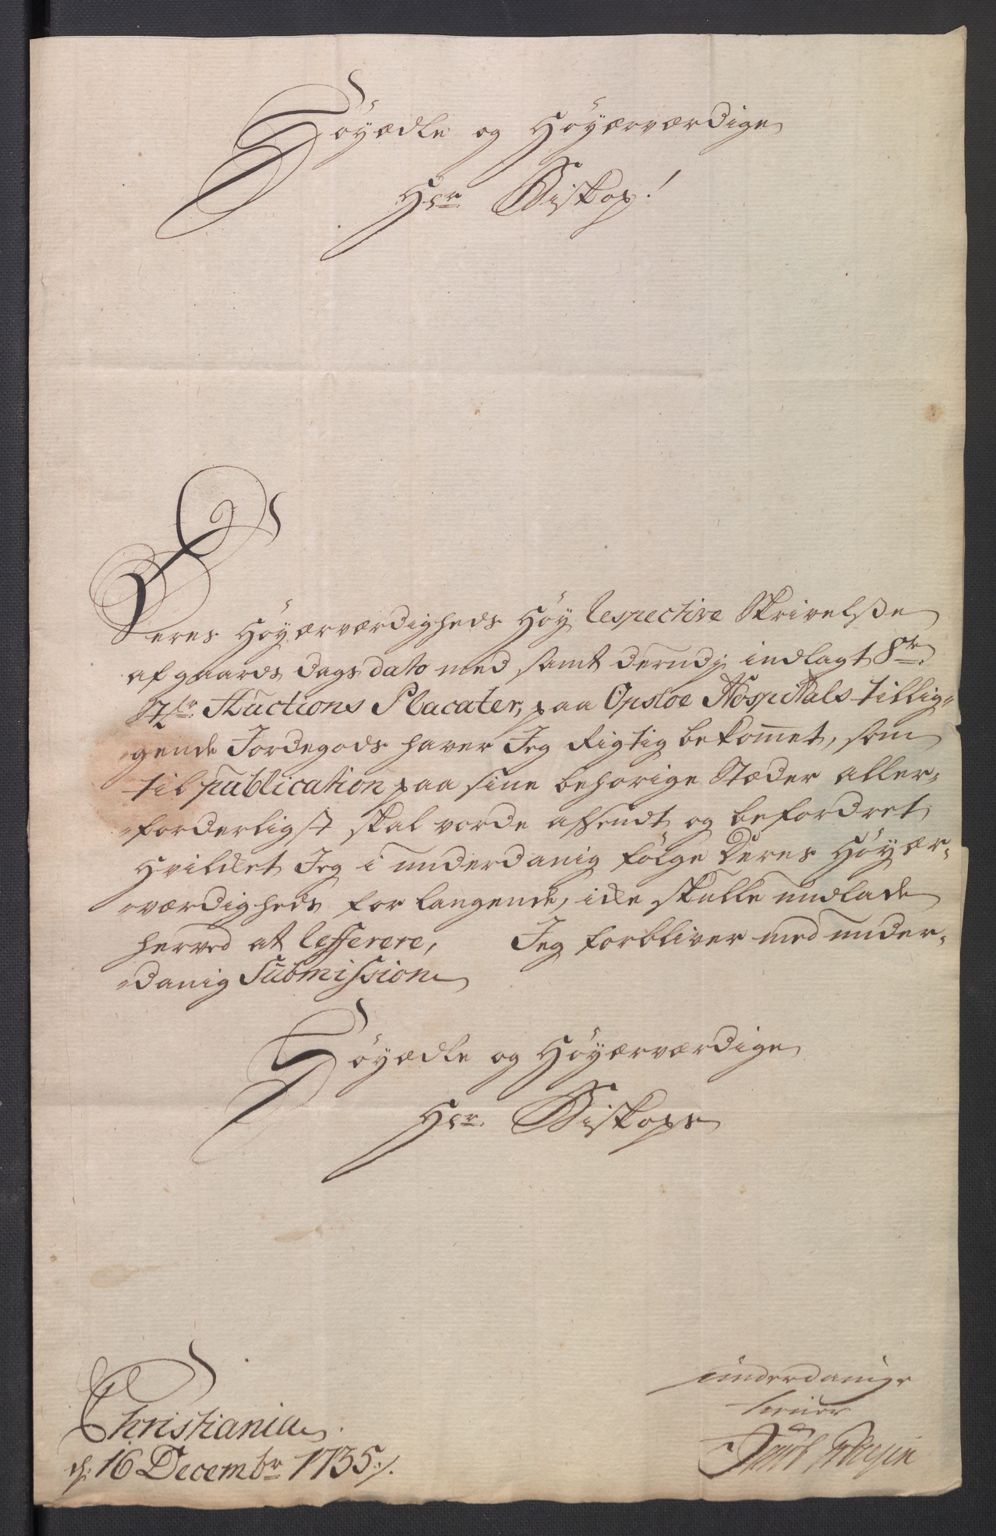 Höyædle og Höyærværdige
Her Biskop!
Deres Höyærværdigheds Höy respective Skrivelße
af gaards dags dato med samt derudj indlagt 8te
Auctions Placater, paa Opsloe Hospitals tillig-
gende Jordegods haver Jeg Rigtig bekomet, som
til publication paa sine behörige Stæder aller-
forderligst skal vorde afsendt og befordret
Hvildet Jeg i underdanig fölge Deres Höyær-
værdigheds forlangende, icke skulle undlade
herved at refferere, Jeg forbliver med under-
danig Submission
Höyædle og Höyærværdige
Her Biskops
Christiania
d: 16 Decembr 1735.
underdanige
tiener